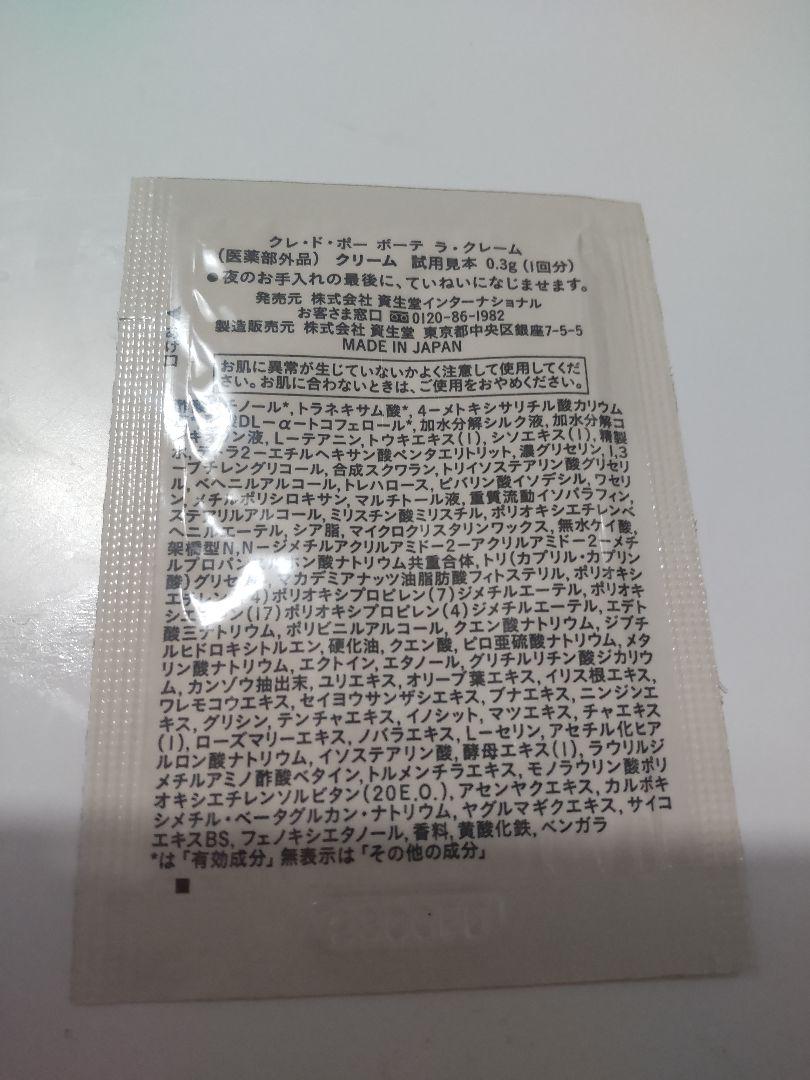 クレ・ド・ポー ボーテ ラ・クレーム
(医薬部外品) クリーム 試用見本 0.3g (1回分)
●夜のお手入れの最後に、ていねいになじませます。
発売元 株式会社 資生堂インターナショナル
お客さま窓口 0120-86-1982
製造販売元 株式会社 資生堂 東京都中央区銀座7-5-5
MADE IN JAPAN
あけ口
お肌に異常が生じていないかよく注意して使用してくだ
さい。お肌に合わないときは、ご使用をおやめください。
チノール*, トラネキサム酸*, 4-メトキシサリチル酸カリウム
酸DL-α-トコフェロール*, 加水分解シルク液, 加水分解コ
ン液, L-テアニン, トウキエキス(1), シソエキス(1), 精製
ラ2-エチルヘキサン酸ペンタエリトリット, 濃グリセリン, 1,3
-ブチレングリコール, 合成スクワラン, トリイソステアリン酸グリセリ
ル, ベヘニルアルコール, トレハロース, ピバリン酸イソデシル, ワセリ
ン, メチルポリシロキサン, マルチトール液, 重質流動イソパラフィン,
ステアリルアルコール, ミリスチン酸ミリスチル, ポリオキシエチレンベ
ヘニルエーテル, シア脂, マイクロクリスタリンワックス, 無水ケイ酸,
架橋型N,N-ジメチルアクリルアミド-2-アクリルアミド-2-メチ
ルプロパンスルホン酸ナトリウム共重合体, トリ(カプリル・カプリン
酸)グリセ マカデミアナッツ油脂肪酸フィトステリル, ポリオキシ
エチレン 4)ポリオキシプロピレン(7)ジメチルエーテル, ポリオキ
シエチレン(17)ポリオキシプロピレン(4)ジメチルエーテル, エデト
酸三ナトリウム, ポリビニルアルコール, クエン酸ナトリウム, ジブチ
ルヒドロキシトルエン, 硬化油, クエン酸, ピロ亜硫酸ナトリウム, メタ
リン酸ナトリウム, エクトイン, エタノール, グリチルリチン酸ジカリウ
ム, カンゾウ抽出末, ユリエキス, オリーブ葉エキス, イリス根エキス,
ワレモコウエキス, セイヨウサンザシエキス, ブナエキス, ニンジンエ
キス, グリシン, テンチャエキス, イノシット, マツエキス, チャエキス
(1), ローズマリーエキス, ノバラエキス, L-セリン, アセチル化ヒア
ルロン酸ナトリウム, イソステアリン酸, 酵母エキス(1), ラウリルジ
メチルアミノ酢酸ベタイン, トルメンチラエキス, モノラウリン酸ポリ
オキシエチレンソルビタン(20E.O.), アセンヤクエキス, カルボキ
シメチル・ベータグルカン・ナトリウム, ヤグルマギクエキス, サイコ
エキスBS, フェノキシエタノール, 香料, 黄酸化鉄, ベンガラ
*は「有効成分」無表示は「その他の成分」